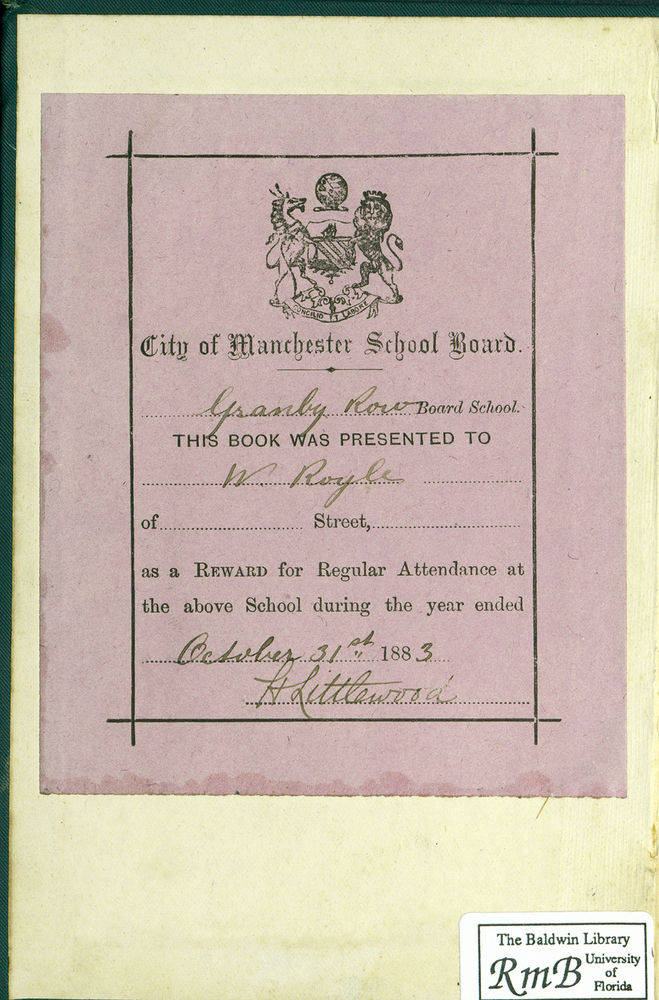 CONCILIO ET LABORE
City of Manchester School Board.
Granby Row Board School.
THIS BOOK WAS PRESENTED TO
W. Royle
of Street,
as a REWARD for Regular Attendance at
the above School during the year ended
October 31st 1883
H Littlewood
The Baldwin Library
RmB University of Florida